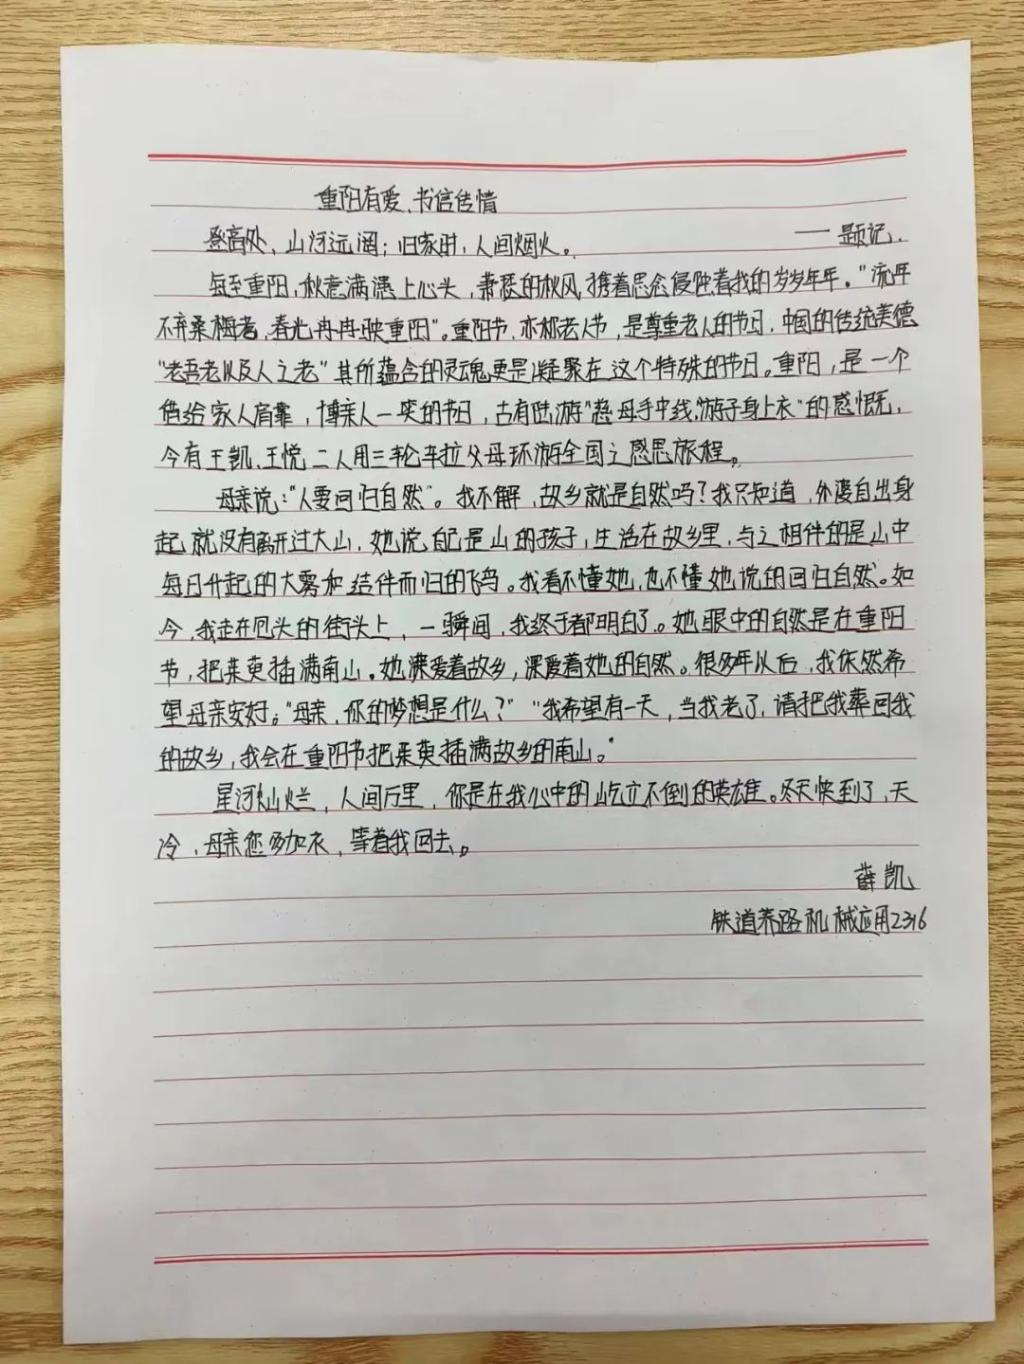 重阳有爱、书信传情
登高处，山河远阔；归家时，人间烟火。 —— 题记.
每至重阳，秋意满漫上心头，萧瑟的秋风，携着思念侵蚀着我的岁岁年年。"流年
不弃桑梅老，春光冉冉映重阳"。重阳节，亦称老人节，是尊重老人的节日，中国的传统美德
"老吾老以及人之老"其所蕴含的灵魂更是凝聚在这个特殊的节日。重阳，是一个
借给家人肩靠，博亲人一笑的节日，古有陆游"慈母手中线，游子身上衣"的感慨，
今有王凯、王悦二人用三轮车拉父母环游全国之感恩旅程。
母亲说："人要回归自然"。我不解，故乡就是自然吗？我只知道，外婆自出身
起就没有离开过大山，她说自己是山的孩子，生活在故乡里，与之相伴的是山中
每日升起的大雾和结伴而归的飞鸟。我看不懂她，也不懂她说的回归自然。如
今，我走在包头的街头上，一瞬间，我终于都明白了。她眼中的自然是在重阳
节，把茱萸插满南山。她深爱着故乡，深爱着她的自然。很多年以后，我依然希
望母亲安好。"母亲，你的梦想是什么？" "我希望有一天，当我老了，请把我葬回我
的故乡，我会在重阳节把茱萸插满故乡的南山。"
星河灿烂，人间万里，你是在我心中的屹立不倒的英雄。冬天快到了，天
冷、母亲您多加衣，等着我回去。
薛凯
铁道养路机械应用2316